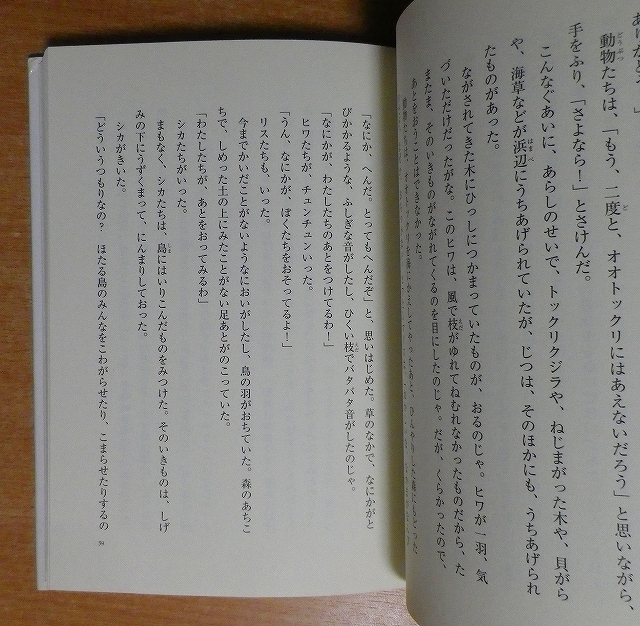 動物たちは、「もう、二度と、オオトックリにはあえないだろう」と思いながら、
手をふり、「さよなら！」とさけんだ。
こんなぐあいに、あらしのせいで、トックリクジラや、ねじまがった木や、貝がら
や、海草などが浜辺にうちあげられていたが、じつは、そのほかにも、うちあげられ
たものがあった。
ながされてきた木にひっしにつかまっていたものが、おるのじゃ。ヒワが一羽、気
づいただけだったがな。このヒワは、風で枝がゆれてねむれなかったものだから、た
またま、そのいきものがながれてくるのを目にしたのじゃ。だが、くらかったので、
あとをおうことはできなかった。
「なにか、へんだ。とってもへんだぞ」と、思いはじめた。草のなかで、なにかがと
びかかるような、ふしぎな音がしたし、ひくい枝でバタバタ音がしたのじゃ。
「なにかが、わたしたちのあとをつけてるわ！」
ヒワたちが、チュンチュンいった。
「うん、なにかが、ぼくたちをおそってるよ！」
リスたちも、いった。
今までかいだことがないようなにおいがしたし、鳥の羽がおちていた。森のあちこ
ちで、しめった土の上にみたことがない足あとがのこっていた。
「わたしたちが、あとをおってみるわ」
シカたちがいった。
まもなく、シカたちは、島にはいりこんだものをみつけた。そのいきものは、しげ
みの下にうずくまって、にんまりしておった。
シカがきいた。
「どういうつもりなの？　ほたる島のみんなをこわがらせたり、こまらせたりするの
94